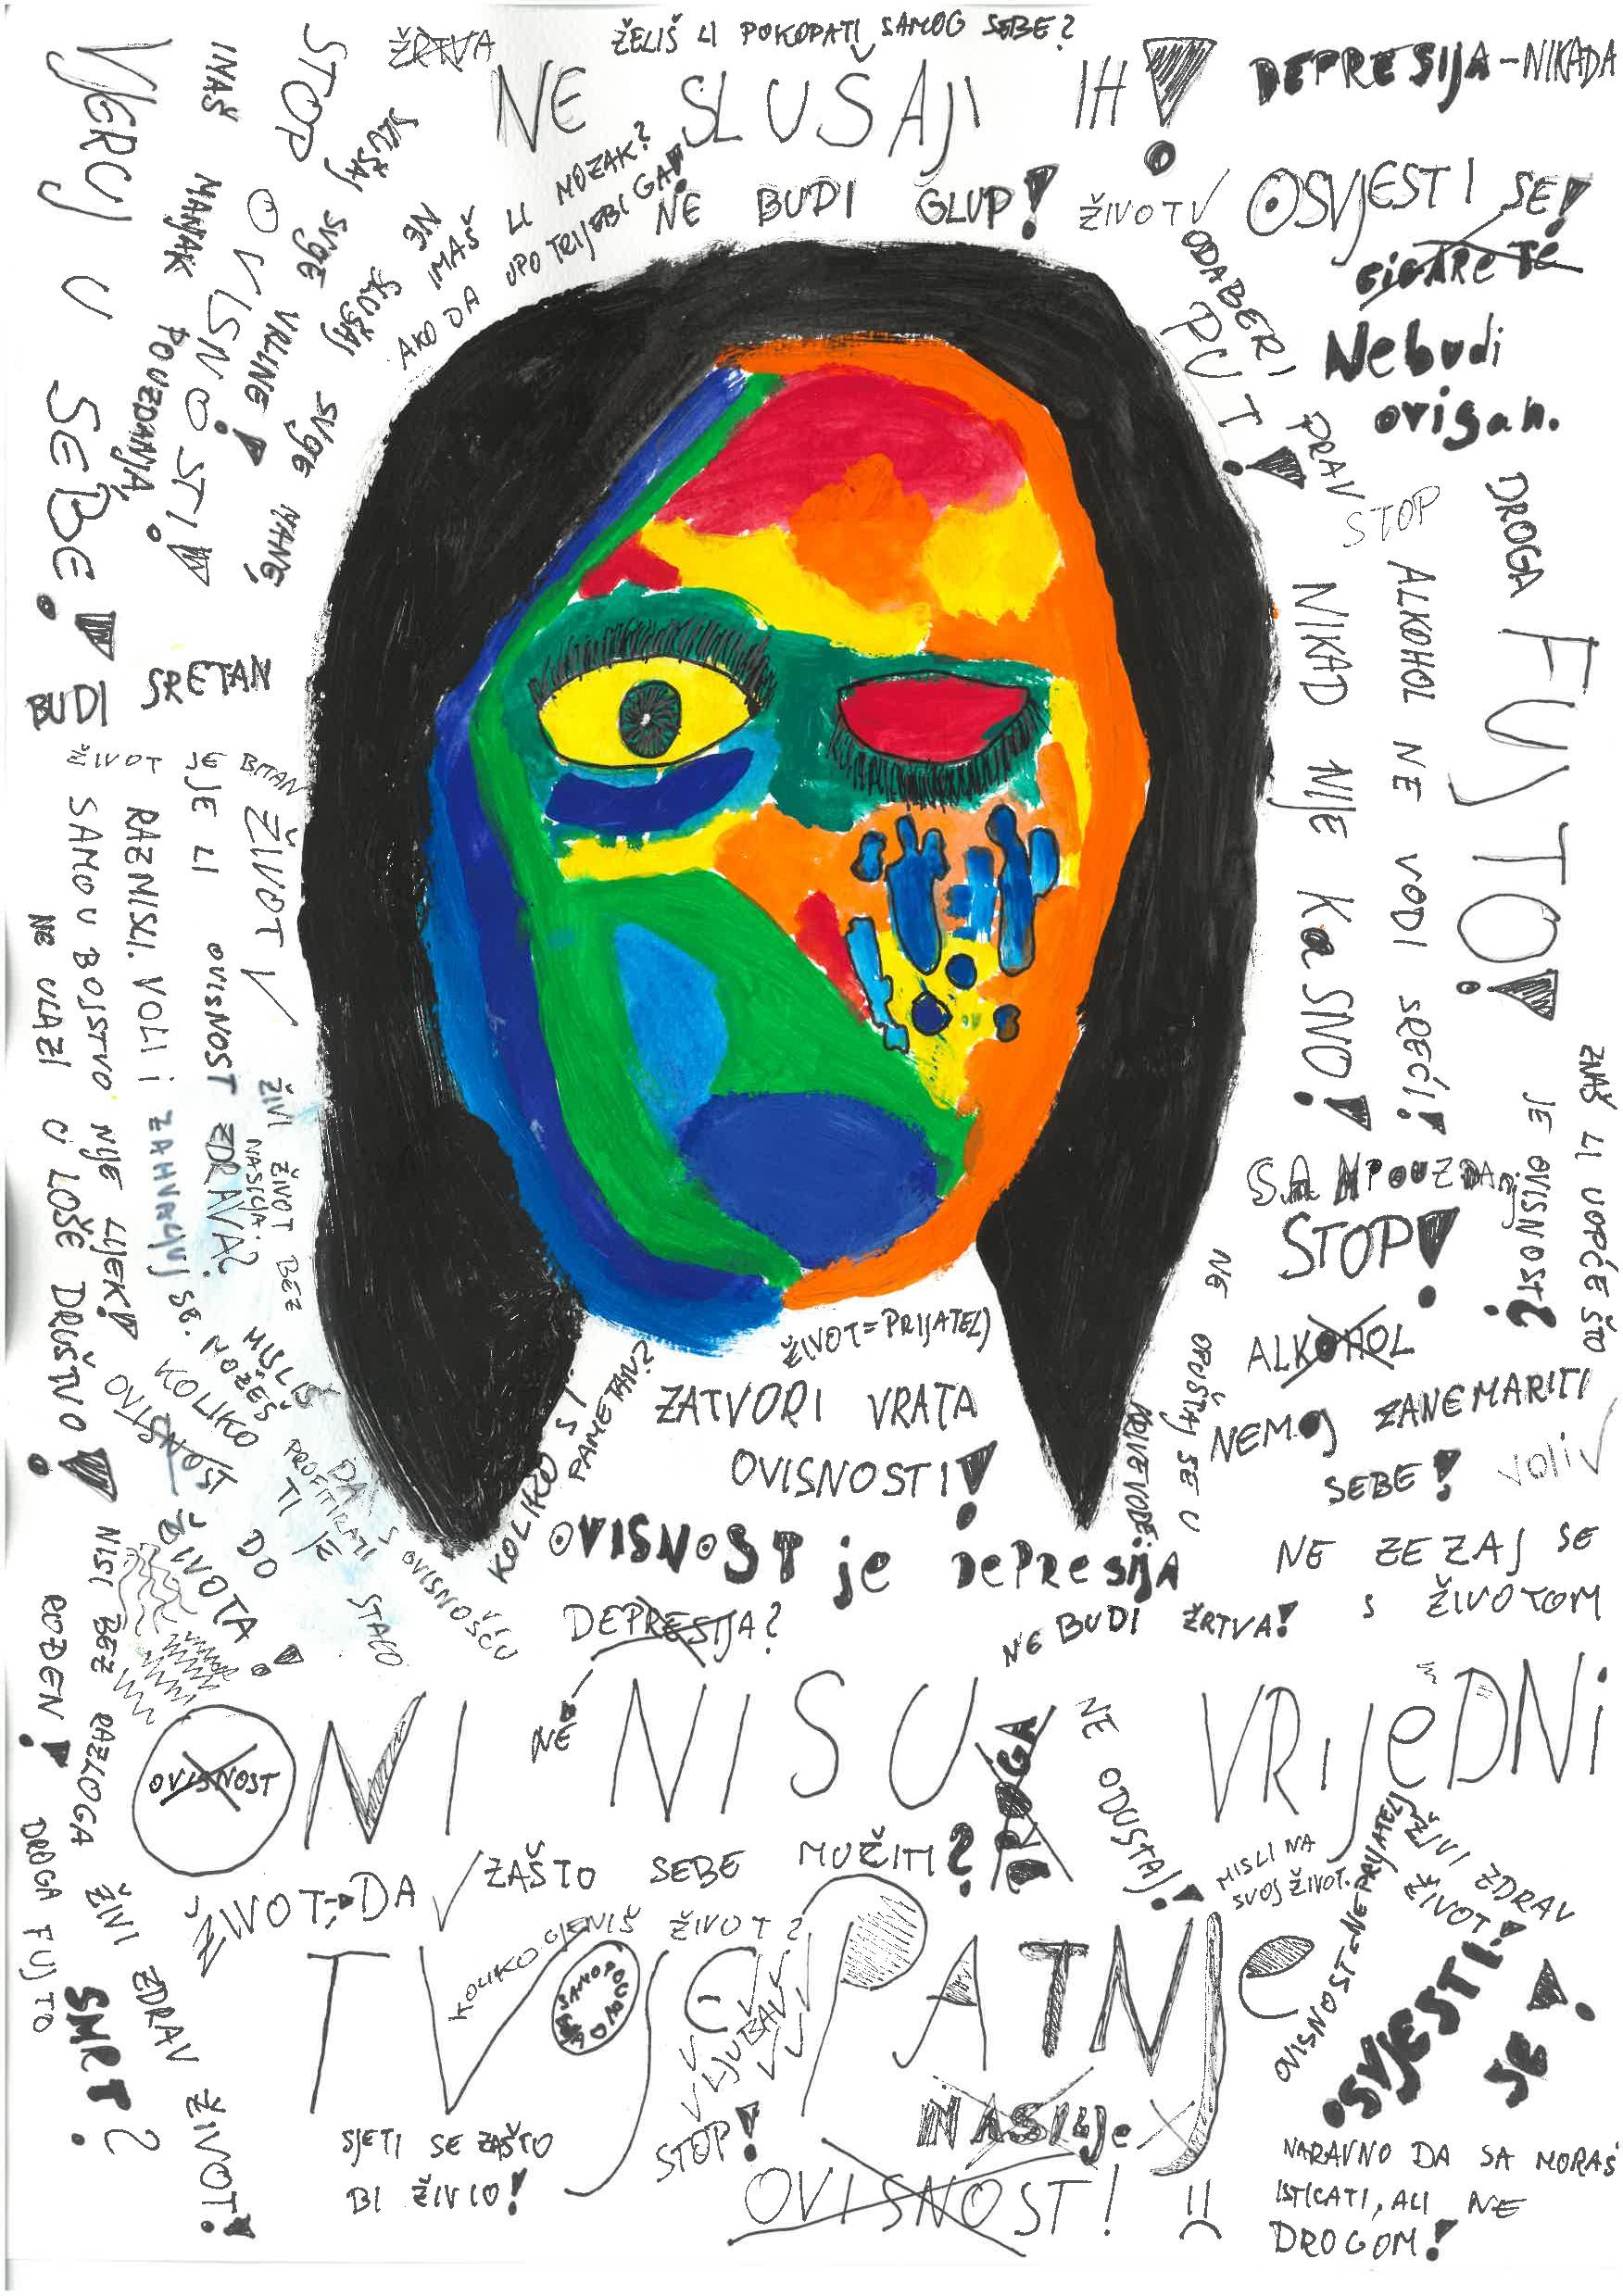 ŽELIŠ LI POKOPATI SAMOG SEBE?
ŽRTVA
NE SLUŠAJ IH!
DEPRESIJA-NIKADA
NE BUDI GLUP!
ŽIVOT
OSVJESTI SE!
CIGARETE
ODABERI
PRAV
PUT!
Nebudi
ovisan.
STOP
OVISNOSTI!
VJERUJ U SEBE!
IMAŠ MANJAK POUZDANJA!
SLUŠAJ SVOJE VRLINE!
NE SLUŠAJ SVOJE MANE!
IMAŠ LI MOZAK?
AKO DA UPOTRIJEBI GA!
BUDI SRETAN
ŽIVOT JE BITAN
ŽIVOT
JE LI OVISNOST ZDRAVA?
RAZMISLI. VOLI I ZAHVALJUJ SE.
SAMOUBOJSTVO NIJE LIJEK!
NE ULAZI U LOŠE DRUŠTVO!
ŽIVI ŽIVOT BEZ
NASILJA.
DROGA FUJ TO!
STOP
ALKOHOL NE VODI SREĆI!
NIKAD NIJE KaSNO!
ZNAŠ LI UOPĆE ŠTO
JE OVISNOST?
STOP!
ALKOHOL
NEMOJ ZANEMARITI
SEBE!
VOLI
NE OPUŠTAJ SE U
KRIVE VODE!
NE ZEZAJ SE
S ŽIVOTOM
ŽIVOT=PRIJATELJ
ZATVORI VRATA
OVISNOSTI!
KOLIKO SI
PAMETAN?
OVISNOST je DEPRESIJA
DEPRESIJA?
NE
NE BUDI ŽRTVA!
MISLIŠ DA
MOŽEŠ PROFITIRATI S OVISNOŠĆU
KOLIKO TI JE STALO
DO ŽIVOTA!
OVISNOST
NISI BEZ RAZLOGA
ROĐEN!
OVISNOST
ONI NISU VRIJEDNI
DROGA
NE ODUSTAJ!
ŽIVOT-DA
ZAŠTO SEBE MUČITI?
MISLI NA
SVOJ ŽIVOT.
ŽIVI ZDRAV
ŽIVOT!
OVISNOST-NEPRIJATELJ
KOLIKO CIJENIŠ ŽIVOT?
TVOJE PATNJE
LJUBAV
DROGA FUJ TO
SMRT?
ŽIVI ZDRAV ŽIVOT!
OSVJESTI
SE!
SJETI SE ZAŠTO
BI ŽIVIO!
STOP!
NASILJE
OVISNOST!
NARAVNO DA SA MORAŠ
ISTICATI, ALI NE
DROGOM!